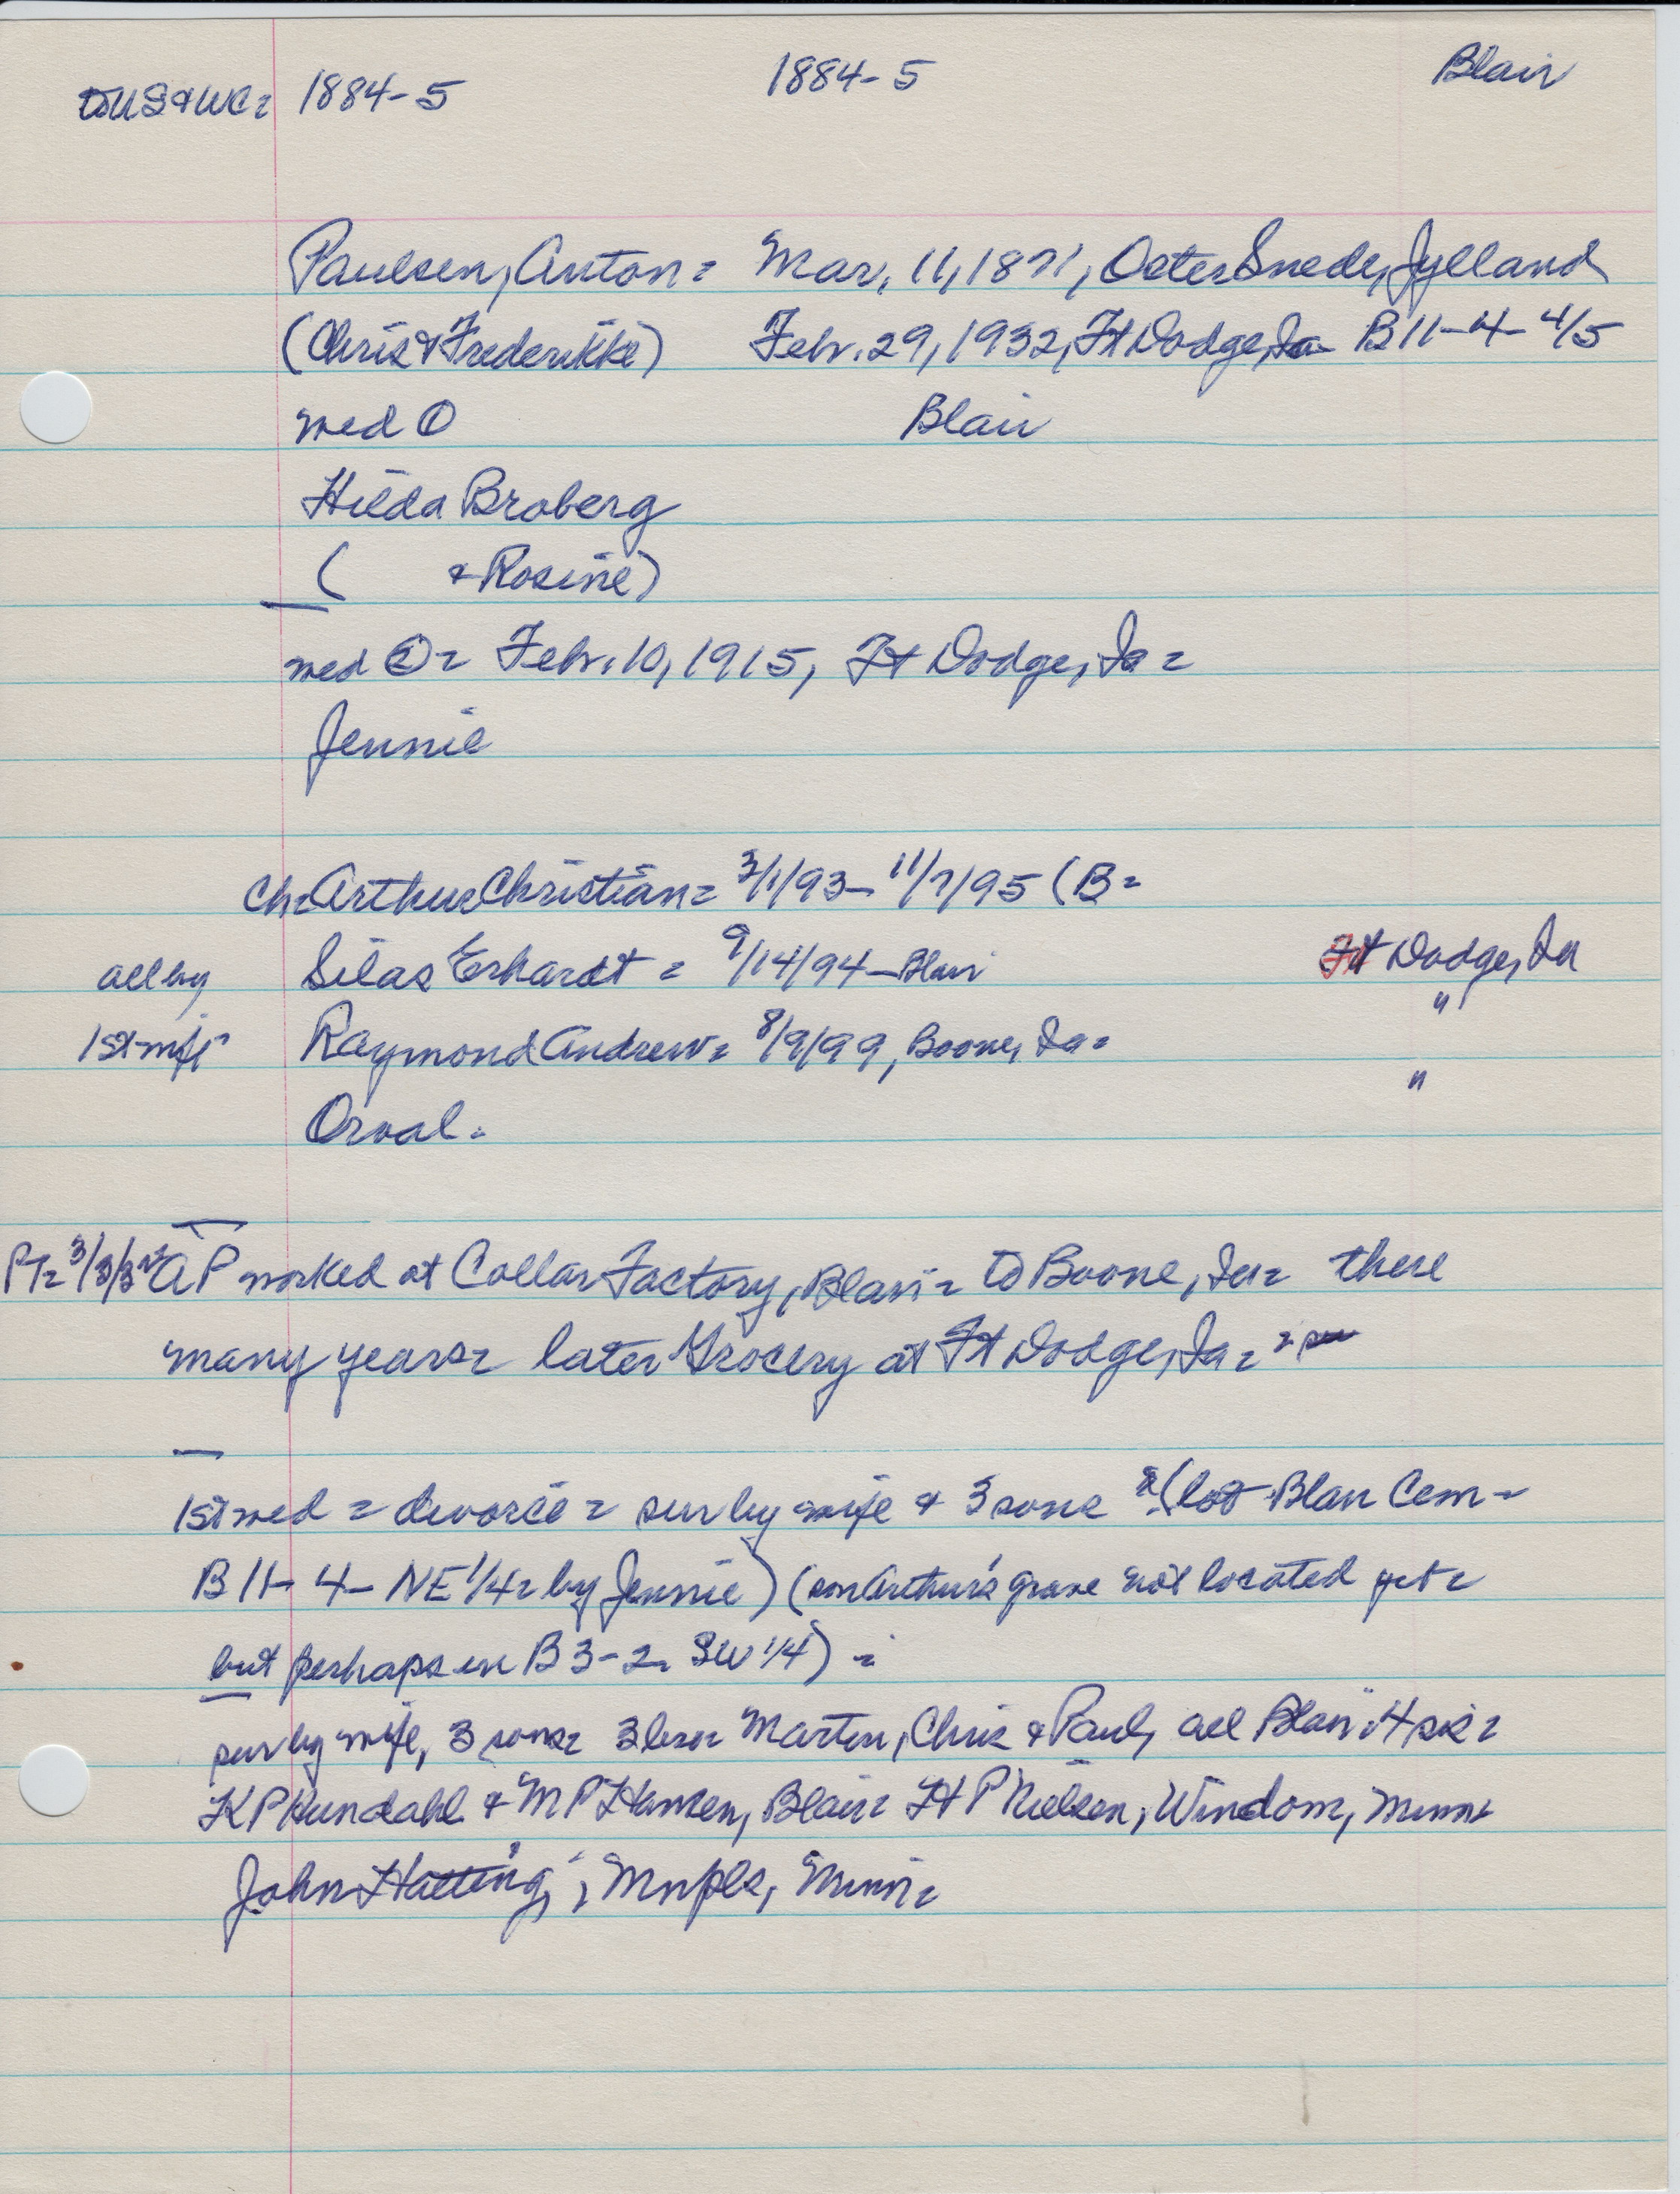 to US & WC = 1884-5 1884-5 Blair
Paulsen, Anton = Mar. 11, 1871, Oester Snede, Jylland
(Chris & Frederikke) Febr. 29, 1932, Ft Dodge, Ia B 11-4-4/5
med ① Blair
Hilda Broberg
( & Rosine)
med ② = Febr. 10, 1915, Ft Dodge, Ia =
Jennie
Ch = Arthur Christian = 3/1/93 - 11/7/95 (B =
all by Silas Erhardt = 9/14/94 - Blair Ft Dodge, Ia
1st wife Raymond Andrew = 8/9/99, Boone, Ia = "
Orval = "
PT = 3/3/32 AP worked at Collar Factory, Blair = to Boone, Ia = there
many years = later Grocery at Ft Dodge, Ia =
1st med = divorce = sur by wife & 3 sons = (lot Blair Cem =
B 11-4- NE 1/4 = by Jennie) (son Arthur's grave not located yet =
but perhaps in B 3-2- SW 1/4) =
sur by wife, 3 sons = 3 bro = Martin, Chris & Paul, all Blair = 4 sis =
K P Hundahl & M P Hansen, Blair = H P Nielsen, Windom, Minn =
John Hatting, Mnpls, Minn =